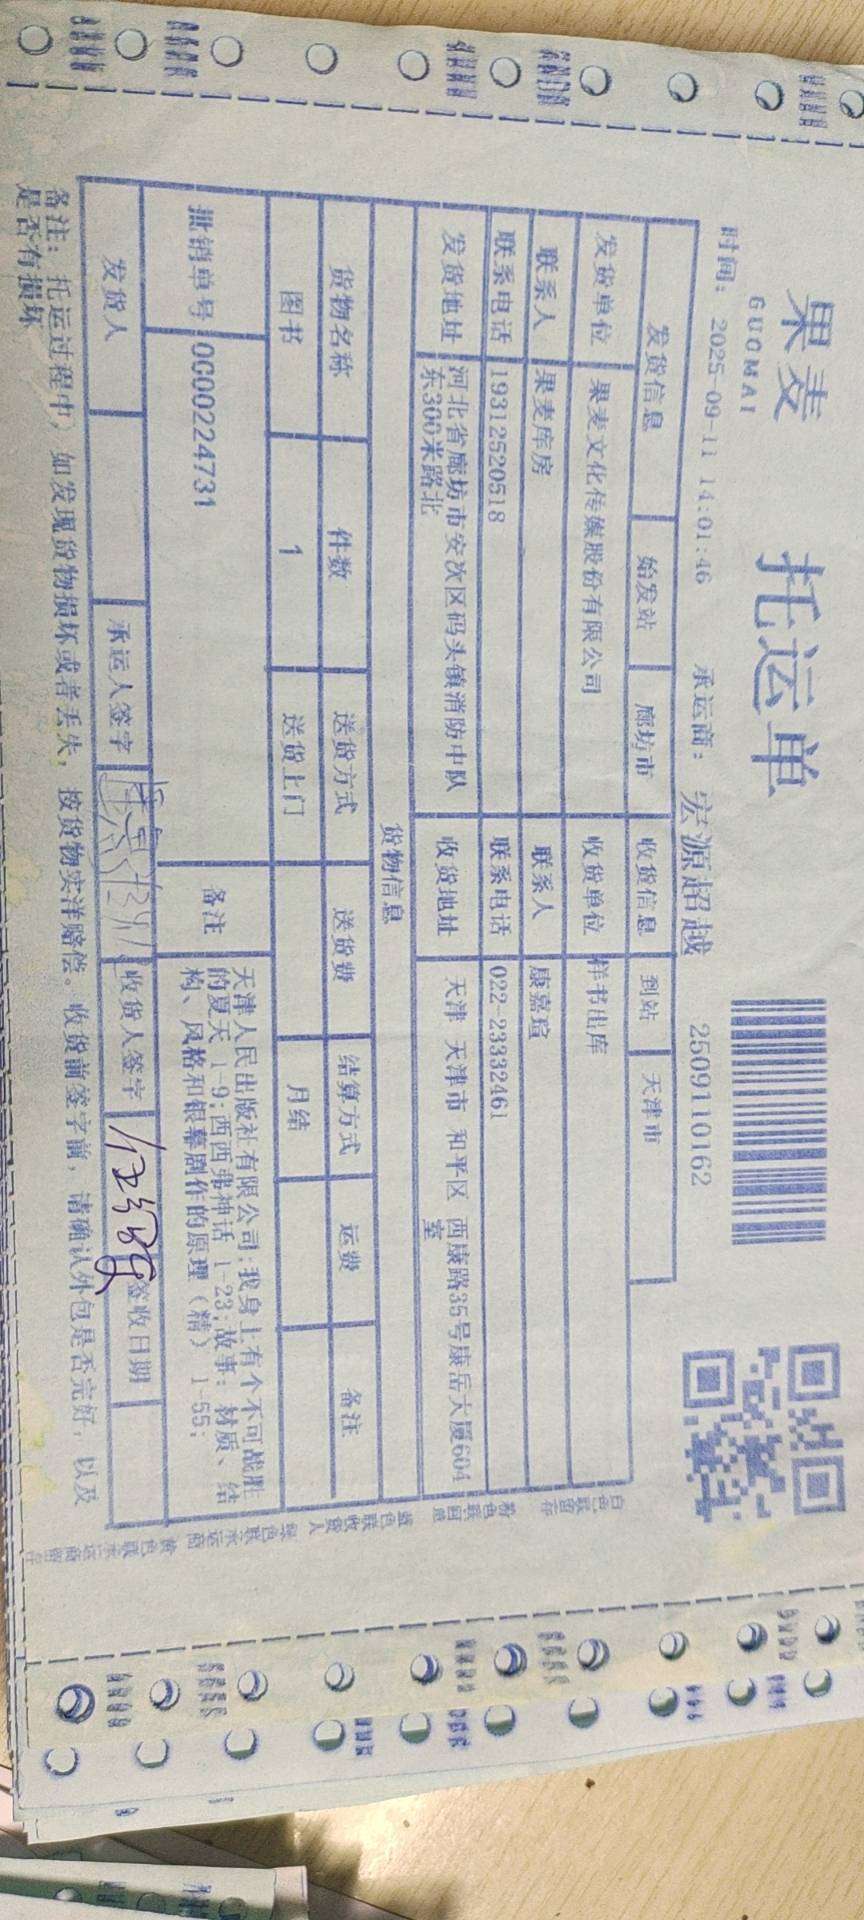 果麦
GUOMAI
托运单
时间：2025-09-11 14:01:46 承运商：宏源超越 2509110162
发货信息 始发站 廊坊市 收货信息 到站 天津市
发货单位 果麦文化传媒股份有限公司 收货单位 样书出库
联系人 果麦库房 联系人 康嘉瑄
联系电话 19312520518 联系电话 022-23332461
发货地址 河北省廊坊市安次区码头镇消防中队
东300米路北 收货地址 天津 天津市 和平区 西康路35号康岳大厦604
室
货物信息
货物名称 件数 送货方式 送货费 结算方式 运费 备注
图书 1 送货上门 月结
批销单号 0C00224731 备注 天津人民出版社有限公司:我身上有个不可战胜
的夏天 1-9;西西弗神话 1-23;故事：材质、结
构、风格和银幕剧作的原理（精） 1-55;
发货人 承运人签字 收货人签字 签收日期
备注：托运过程中，如发现货物损坏或者丢失，按货物实洋赔偿。收货前签字前，请确认外包是否完好，以及
是否有损坏
白色联留存 粉色联回单 蓝色联收货人 绿色联承运商 黄色联承运商留存